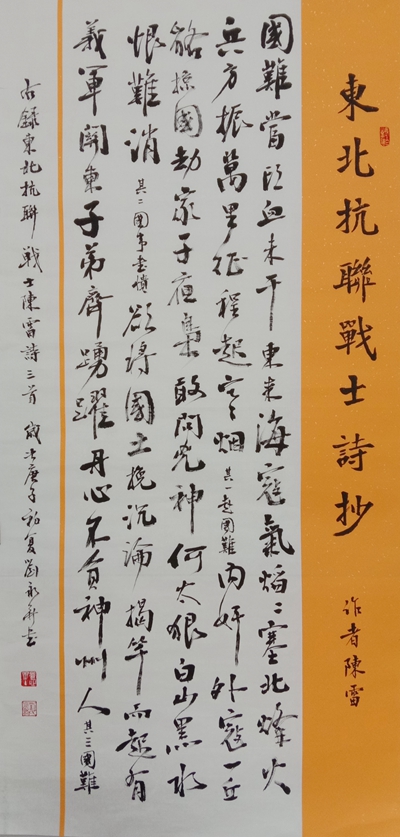 東北抗聯戰士詩抄
作者陳雷
國難當頭血未干東来海寇氣焰〻塞北烽火
兵方振萬里征程起烟其一赴國難内奸外寇一丘
貉掠國劫家于夜集敢問兇神何太狠白山黑水
恨難消其二國事欲將國土挽沉淪揭竿而起有
義軍關東子弟齊踴躍丹心不負神州人其三國難
右錄東北抗聯戰士陳雷詩三首歲次庚子初夏劉永書